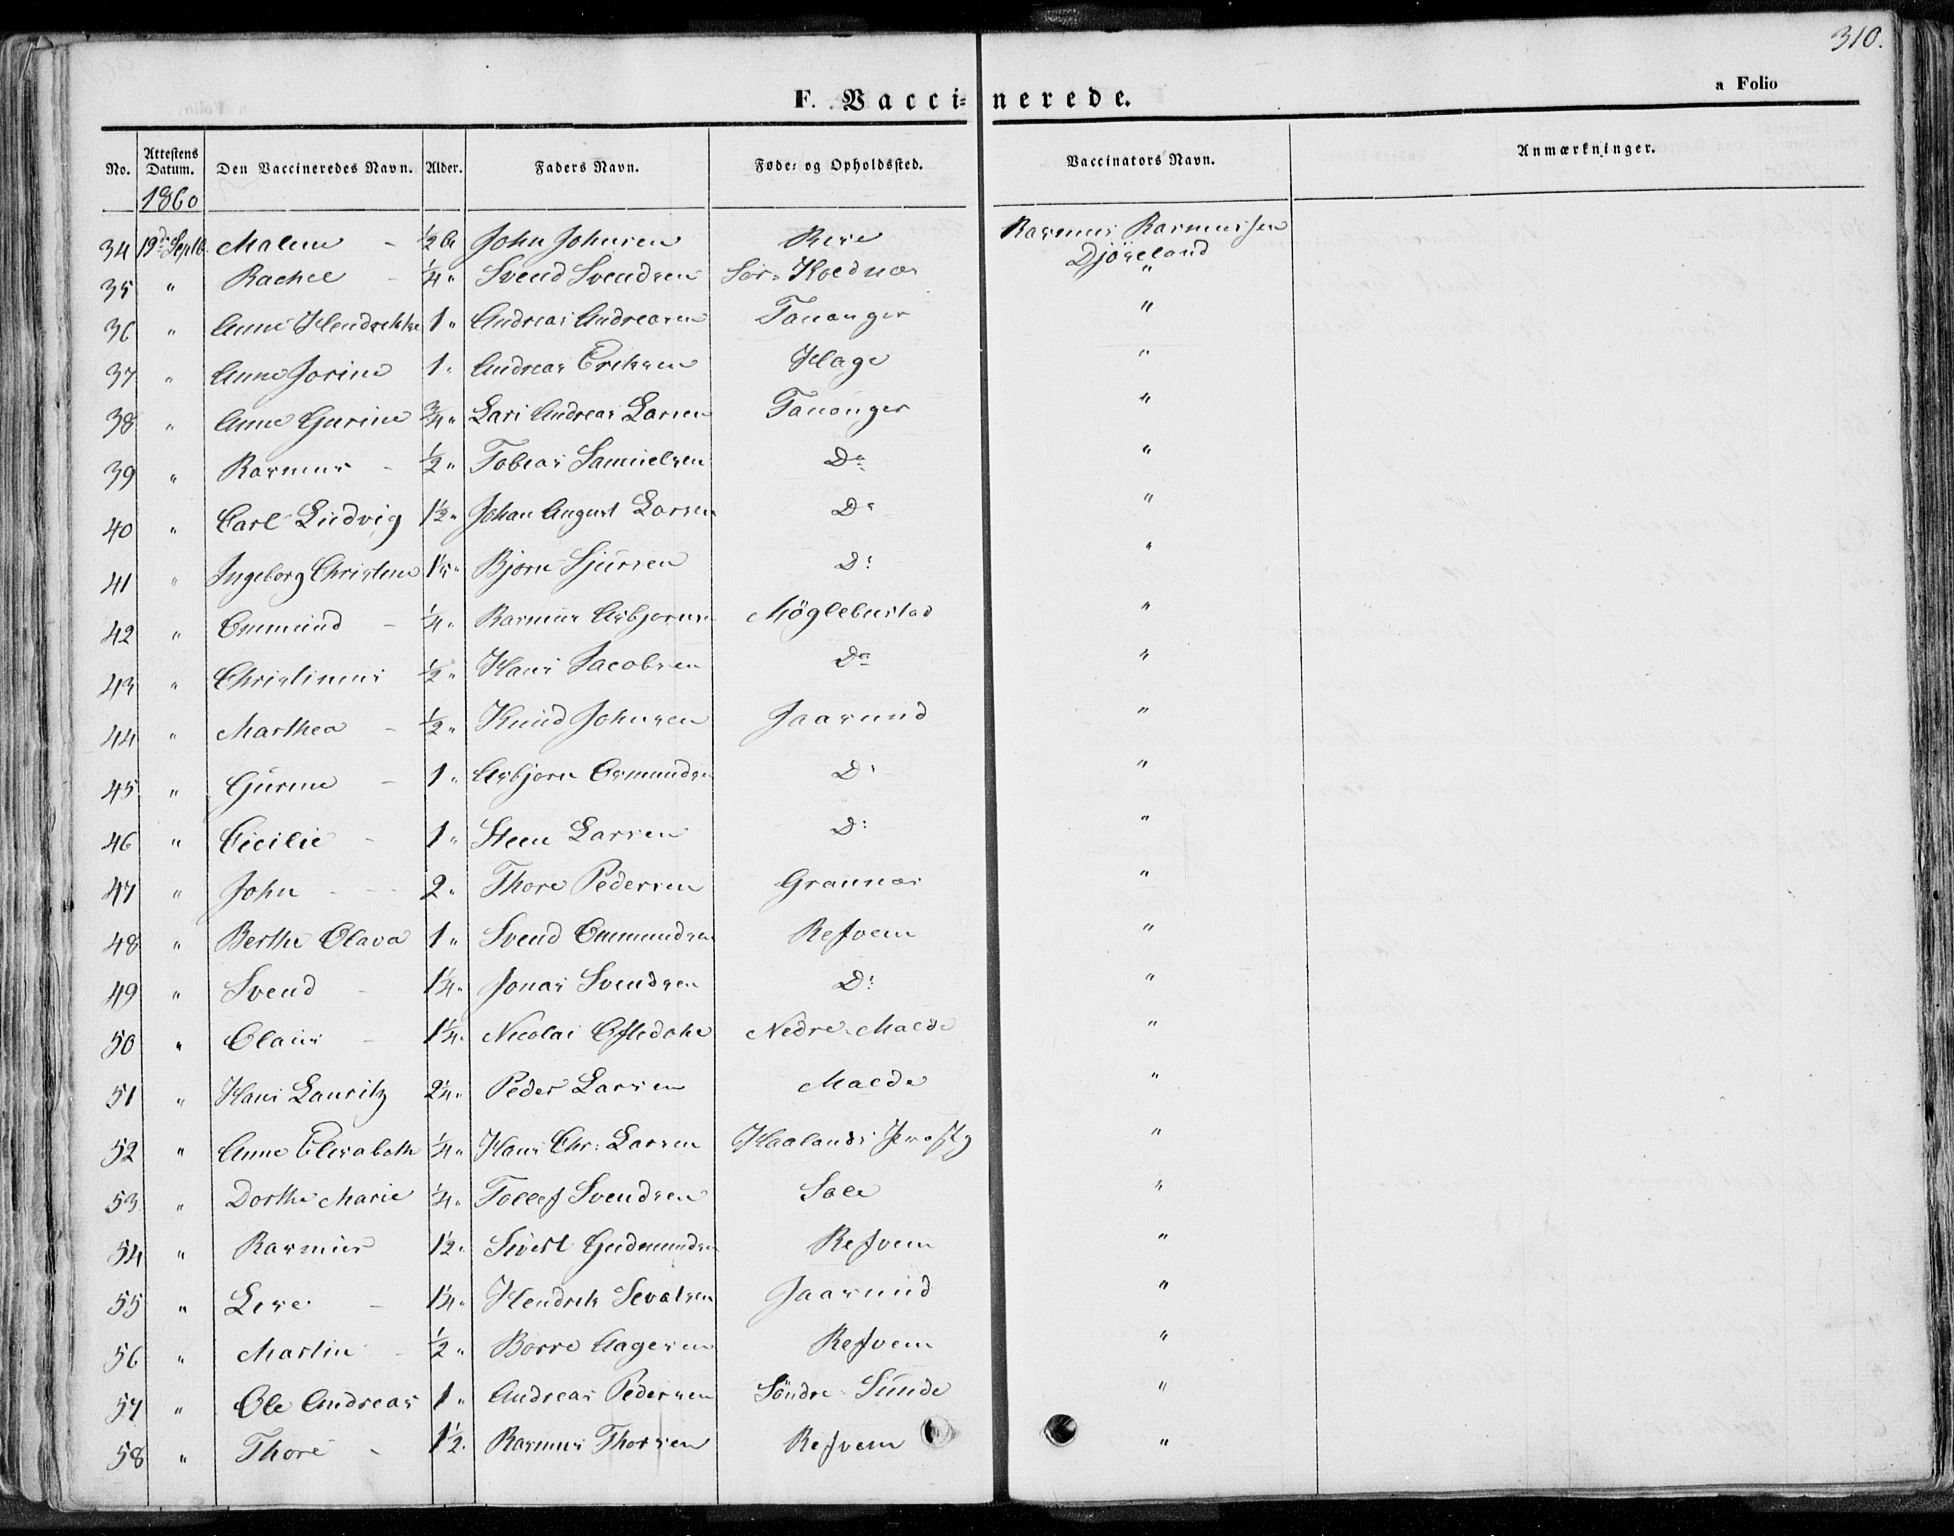 310.
F. Vaccinerede.
a Folio
No. Attestens Datum. Den Vaccineredes Navn. Alder. Faders Navn. Føde- og Opholdssted. Vaccinators Navn. Anmærkninger.
1860
34 19de Septb. Malene - 1/2 Johen Johnsen Rasmus Rasmussen Djöseland
35 " Rachel - 1/4 " Svend Svendsen "
36 " Anne Hendrikke 1 " Andreas Andreasen Tananger "
37 " Anne Josine 1 " Andreas Eriksen Hage "
38 " Anne Gurine 3/4 " Lars Andreas Larsen Tananger "
39 " Rasmus - 1/2 " Tobias Samuelsen Do "
40 " Carl Ludvig 1 1/2 " Johan August Larsen Do "
41 " Ingeborg Christine Bjørn Sjursen Do "
42 " Ommund - 1/4 " Rasmus Asbjørnsn Møglebustad "
43 " Christinus 1/2 " Hans Jacobsen Do "
44 " Marthea - 1/2 " Knud Johnsen Jaasund "
45 " Gurine - 1 " Asbjørn Osmundsn Do "
46 " Cecilie - 1 " Steen Larsen Do "
47 " John - - 2 " Thore Pedersen Grannes "
48 " Berthe Olava 1 " Svend Ommundsen Refvem "
49 " Svend - 1 1/4 " Jonas Svendsen Do "
50 " Olaus - 1 1/4 " Nicolai Nedre-Malde "
51 " Hans Lauritz 2 1/4 " Peder Larsen Malde "
52 " Anne Elisabeth 1/4 " Hans Chr: Larsen Haalands "
53 " Dorthe Marie 1/4 " Tollef Svendsen Sole "
54 " Rasmus 1 1/2 " Sivert Gudmundsn Refvem "
55 " Lise - 1 1/4 " Hendrik Sevatsen Jaasund "
56 " Martin - 1/2 " Borre Aagesen Refvem "
57 " Ole Andreas 1 " Andreas Pedersen Söndre Sunde "
58 " Thore - 1 1/2 " Rasmus Thorsen Refvem "